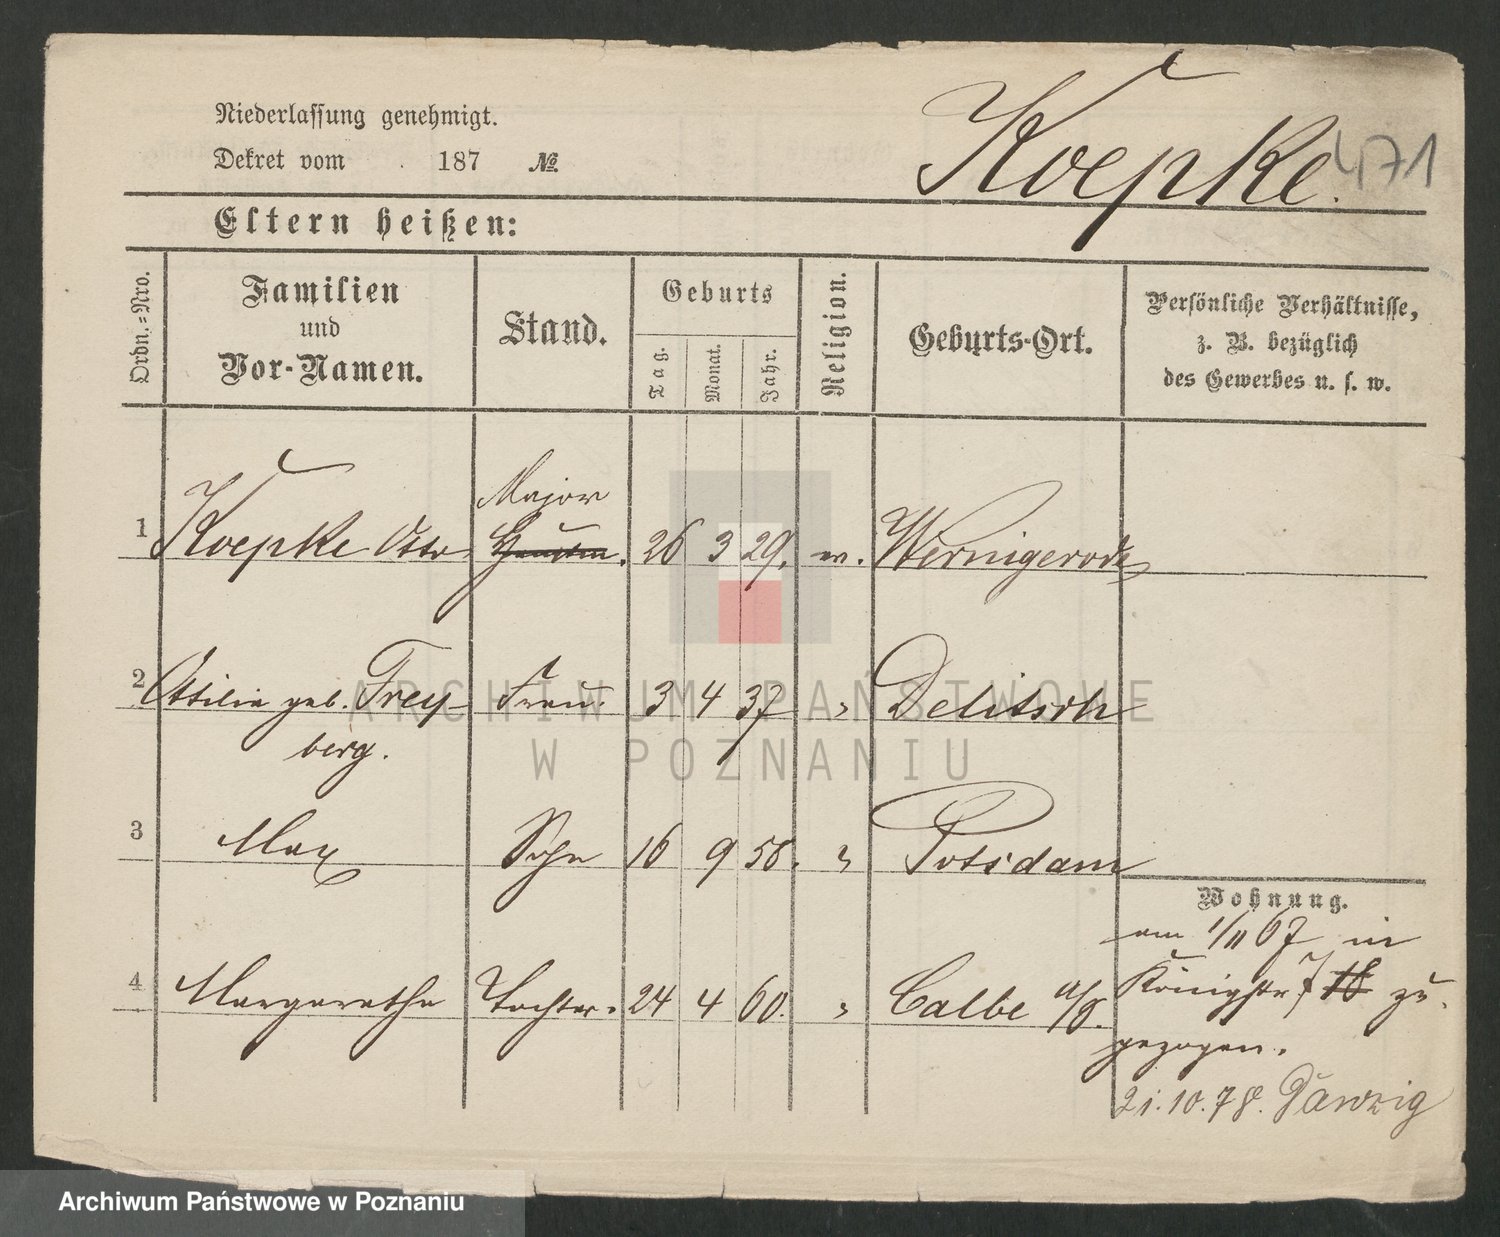 Niederlassung genehmigt.
Dekret vom 187 №
Koepke. 471
Eltern heißen:
Ordn.-Nro.
Familien
und
Vor-Namen.
Stand.
Geburts
Tag.
Monat.
Jahr.
Religion.
Geburts-Ort.
Persönliche Verhältnisse,
z. B. bezüglich
des Gewerbes u. s. w.
Major
1 Koepke Otto Hauptm. 26 3 29. ev. Wernigerode
2 Ottilie geb. Frey- Frau. 3 4 37 " Delitsch
berg.
3 Max Sohn 16 9 58. " Potsdam
Wohnung.
am 1/11 67 in
4 Margarethe Tochter. 24 4 60. " Calbe a/S. Königstr 7 18 zu-
gezogen.
21.10.78. Danzig
ARCHIWUM PAŃSTWOWE
W POZNANIU
Archiwum Państwowe w Poznaniu